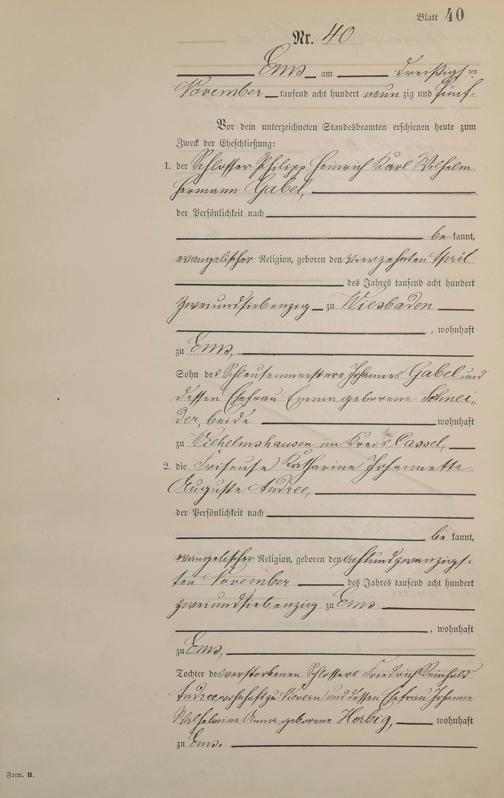 Blatt 40
Nr. 40
Ems am dreißigsten
November tausend acht hundert neun zig und fünf.
Vor dem unterzeichneten Standesbeamten erschienen heute zum
Zweck der Eheschließung:
1. der Schlosser Philipp Heinrich Karl Wilhelm
Hermann Gabel,
der Persönlichkeit nach
be kannt,
evangelischer Religion, geboren den vierzehnten April
des Jahres tausend acht hundert
zweiundsiebenzig zu Wiesbaden
, wohnhaft
zu Ems,
Sohn des Schleusenmeisters Johannes Gabel und
dessen Ehefrau Emma geborene Schnei-
der, beide wohnhaft
zu Wilhelmshausen im Kreis Cassel,
2. die Friseuse Katharine Johannette
Auguste Andree,
der Persönlichkeit nach
be kannt,
evangelischer Religion, geboren den achtundzwanzigs-
ten November des Jahres tausend acht hundert
zweiundsiebenzig zu Ems
, wohnhaft
zu Ems,
Tochter des verstorbenen Schlossers Friedrich Reinhold
Andree wohnhaft zu und dessen Ehefrau Johanne
Wilhelmine Anna geborene Herbig, wohnhaft
zu Ems.
Form. B.